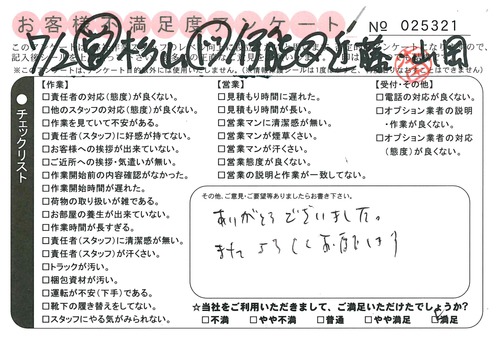 お客様不満足度アンケート
No 025321
【作業】
□責任者の対応(態度)が良くない。
□他のスタッフの対応(態度)が良くない。
□作業を見ていて不安がある。
□責任者(スタッフ)に好感が持てない。
□お客様への挨拶が出来ていない。
□ご近所への挨拶・気遣いが無い。
□作業開始前の内容確認がなかった。
□作業開始時間が遅れた。
□荷物の取り扱いが雑である。
□お部屋の養生が出来ていない。
□作業時間が長すぎる。
□責任者(スタッフ)に清潔感が無い。
□責任者(スタッフ)が汗くさい。
□トラックが汚い。
□梱包資材が汚い。
□運転が不安(下手)である。
□靴下の履き替えをしてない。
□スタッフにやる気がみられない。
【営業】
□見積もり時間に遅れた。
□見積もり時間が長い。
□営業マンに清潔感が無い。
□営業マンが煙草くさい。
□営業マンが汗くさい。
□営業態度が良くない。
□営業の説明と作業が一致してない。
【受付・その他】
□電話の対応が良くない。
□オプション業者の説明
・作業が良くない。
□オプション業者の対応
(態度)が良くない。
●チェックリスト
その他、ご意見・ご要望等ありましたらお書き下さい。
ありがとうございました。
また よろしくお願いします
☆当社をご利用いただきまして、ご満足いただけたでしょうか?
□不満 □やや不満 □普通 □やや満足 □満足